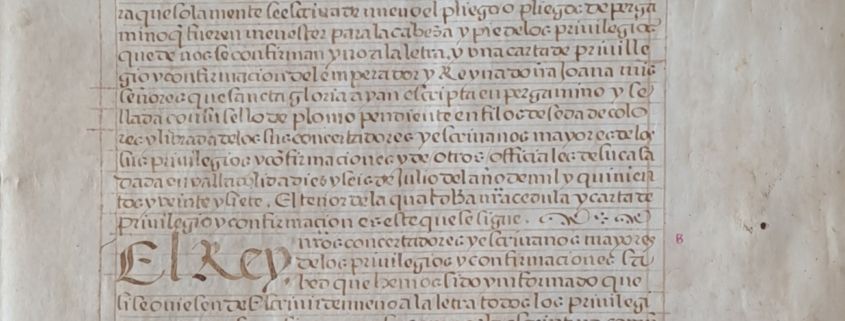 raque solamente se escriva de nuevo el pliego o pliegos de perga
mino q̃ fueren menester para la cabeza y pie de los privilegios
que de nos se confirman y no a la letra, y vna carta de priuille
gio y confirmacion del emperador y Reyna doña Joana mis
señores que sancta gloria ayan escripta en pergamino y se
llada con su sello de plomo pendiente en filos de seda de colo
res y librada de los sus concertadores y escriuanos mayores de los
sus priuilegios y cõfirmaciones y de otros officiales de su casa
dada en valladolid a diez y seis de Julio del año de mil y quinien
tos y veinte y siete. El tenor de la qual dha nr̃a cedula y carta de
priuilegio y confirmacion es este que se sigue.
El Rey. nr̃os concertadores y escriuanos mayores
de los priuilegios y confirmaciones sa
bed que hemos sido ynformado que
si se ouiesen de Escriuir de nueuo a la letra todos los priuilegi
B